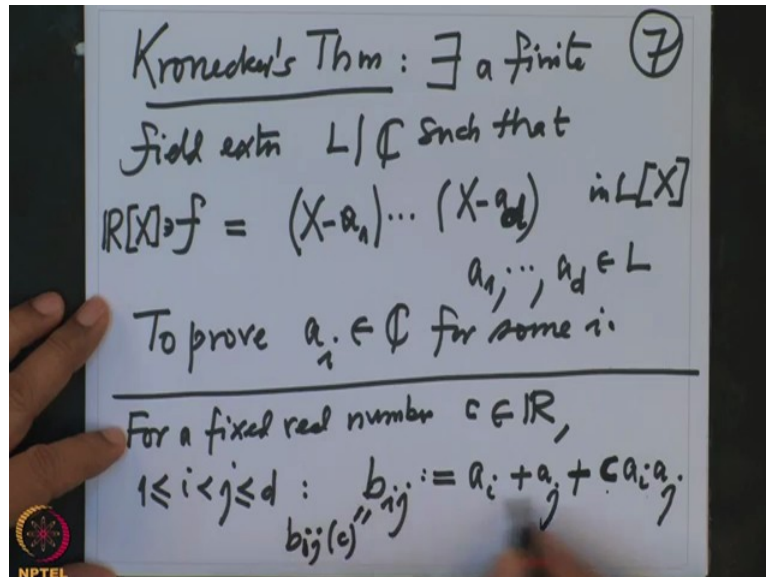 Kronecker's Thm : ∃ a finite ⑦
field extn L|ℂ such that
ℝ[X]∋f = (X-a₁)⋯(X-a_d) in L[X]
a₁,⋯,a_d ∈ L
To prove a_i ∈ ℂ for some i.
For a fixed real number c ∈ ℝ,
1≤i<j≤d : b_ij := a_i + a_j + c a_i a_j
b_ij(c) "
NPTEL